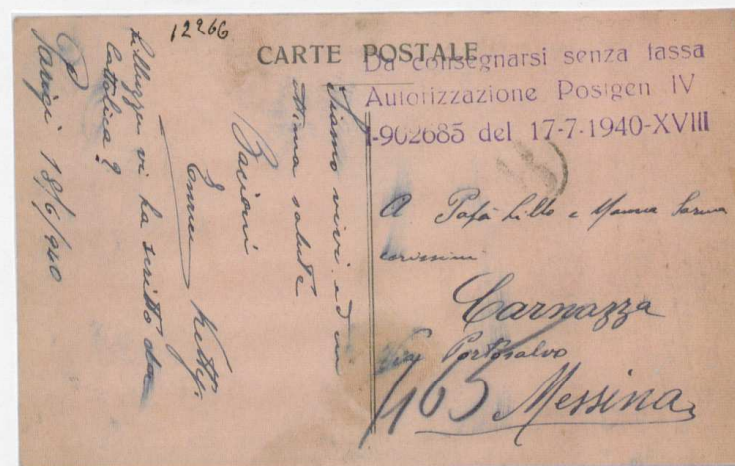 12266
CARTE POSTALE
Da consegnarsi senza tassa
Autorizzazione Postgen IV
I-902685 del 17-7-1940-XVIII
Siamo vivi ed in
ottima salute
Bacioni
Enrico Ketty.
vi ha scritto da
Cattolica?
Parigi 18/6/940
A Papà Lillo e Mamma
carissimi
Carnazza
Via Portosalvo
Messina